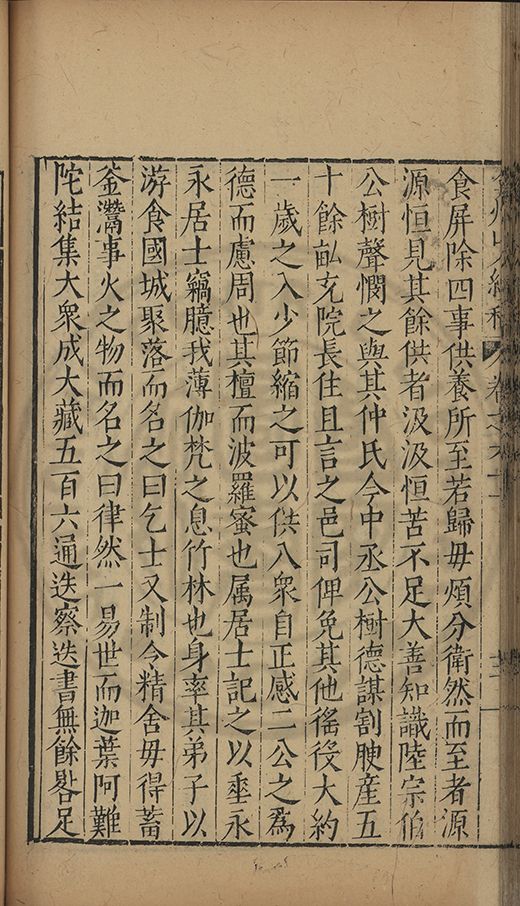 州山人續稿 卷之六十
食屏除四事供養所至若歸毋煩分衛然而至者源
源恒見其餘供者汲汲恒苦不足大善知識陸宗伯
公樹聲憫之與其仲氏今中丞公樹德謀割腴産五
十餘畆充院長住且言之邑司俾免其他徭役大約
一歲之入少節縮之可以供入衆自正感二公之爲
德而慮周也其檀而波羅蜜也属居士記之以垂永
永居士竊臆我薄伽梵之息竹林也身率其弟子以
游食國城聚落而名之曰乞士又制令精舍毋得蓄
釜鬵事火之物而名之曰律然一易世而迦葉阿難
陀結集大衆成大藏五百六通迭察迭書無餘畧足